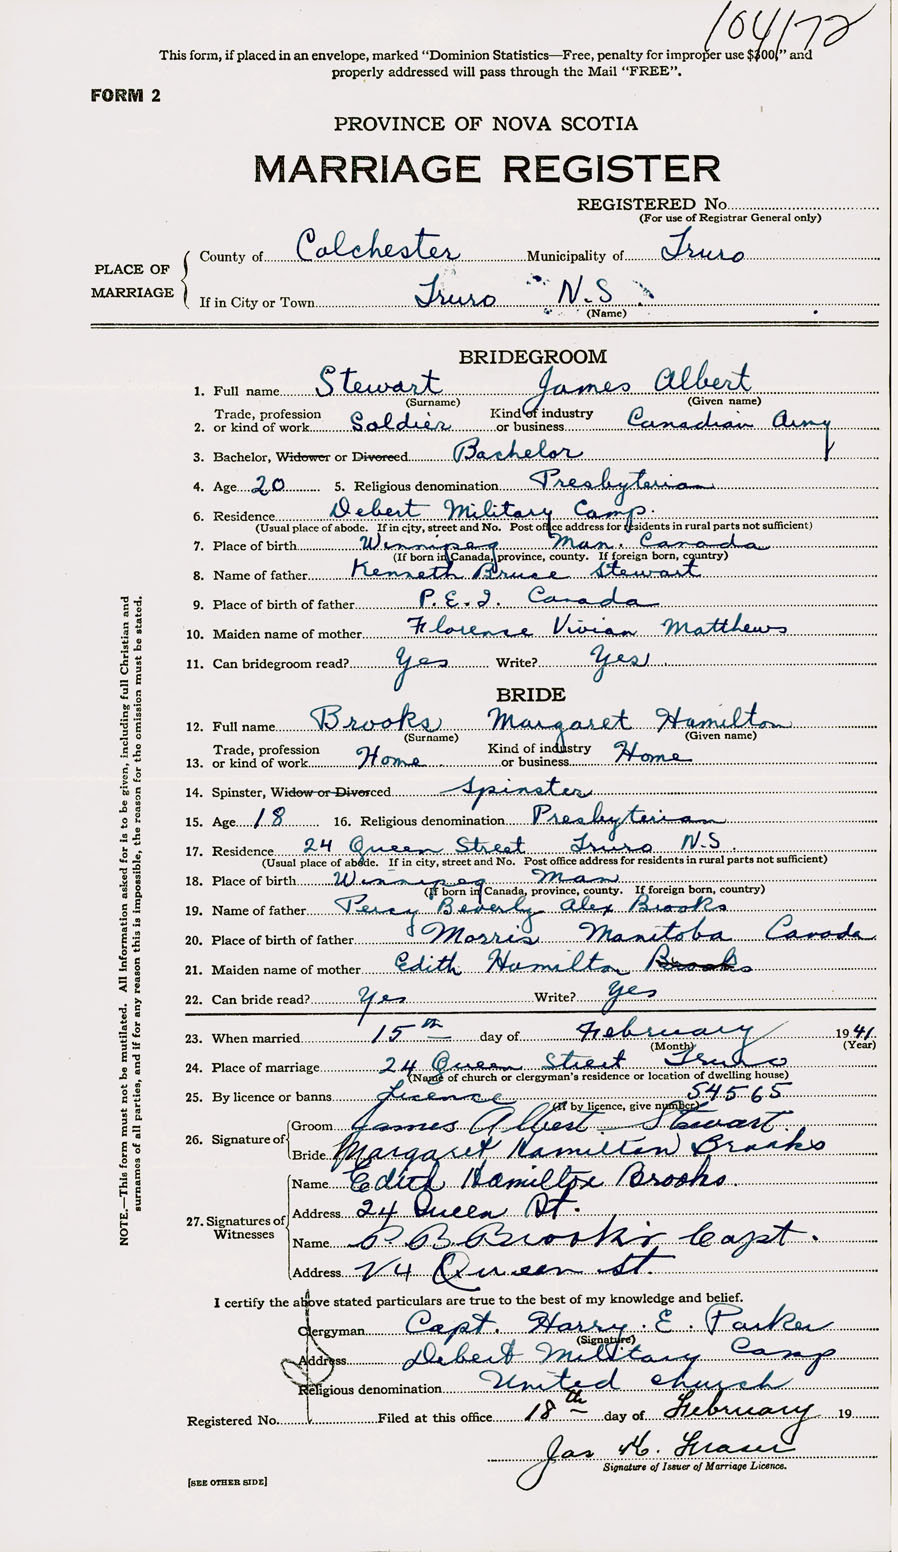 104172
This form, if placed in an envelope, marked "Dominion Statistics—Free, penalty for improper use $300," and
properly addressed will pass through the Mail "FREE".
FORM 2
PROVINCE OF NOVA SCOTIA
MARRIAGE REGISTER
REGISTERED No.
(For use of Registrar General only)
PLACE OF MARRIAGE
County of Colchester Municipality of Truro
If in City or Town Truro N.S
(Name)
BRIDEGROOM
1. Full name Stewart James Albert
(Surname) (Given name)
2. Trade, profession or kind of work Soldier Kind of industry or business Canadian Army
3. Bachelor, Widower or Divorced Bachelor
4. Age 20 5. Religious denomination Presbyterian
6. Residence Debert Military Camp.
(Usual place of abode. If in city, street and No. Post office address for residents in rural parts not sufficient)
7. Place of birth Winnipeg Man. Canada
(If born in Canada, province, county. If foreign born, country)
8. Name of father Kenneth Bruce Stewart
9. Place of birth of father P.E.I. Canada
10. Maiden name of mother Florence Vivian Matthews
11. Can bridegroom read? Yes Write? Yes
BRIDE
12. Full name Brooks Margaret Hamilton
(Surname) (Given name)
13. Trade, profession or kind of work Home Kind of industry or business Home
14. Spinster, Widow or Divorced Spinster
15. Age 18 16. Religious denomination Presbyterian
17. Residence 24 Queen Street Truro N.S.
(Usual place of abode. If in city, street and No. Post office address for residents in rural parts not sufficient)
18. Place of birth Winnipeg Man
(If born in Canada, province, county. If foreign born, country)
19. Name of father Percy Beverly Alex Brooks
20. Place of birth of father Morris Manitoba Canada
21. Maiden name of mother Edith Hamilton Brooks
22. Can bride read? Yes Write? Yes
23. When married 15th day of February 1941
(Month) (Year)
24. Place of marriage 24 Queen Street Truro
(Name of church or clergyman's residence or location of dwelling house)
25. By licence or banns Licence 54565
(If by licence, give number)
26. Signature of Groom James Albert Stewart.
Bride Margaret Hamilton Brooks
27. Signatures of Witnesses
Name Edith Hamilton Brooks.
Address 24 Queen St.
Name P B Brooks Capt.
Address 24 Queen St.
I certify the above stated particulars are true to the best of my knowledge and belief.
Clergyman Capt. Harry E. Parker
(Signature)
Address Debert Military Camp
Religious denomination United church
Registered No. Filed at this office 18th day of February 19
Jas H. Fraser
Signature of Issuer of Marriage Licence.
[SEE OTHER SIDE]
NOTE.—This form must not be mutilated. All Information asked for is to be given, including full Christian and
surnames of all parties, and if for any reason this is impossible, the reason for the omission must be stated.